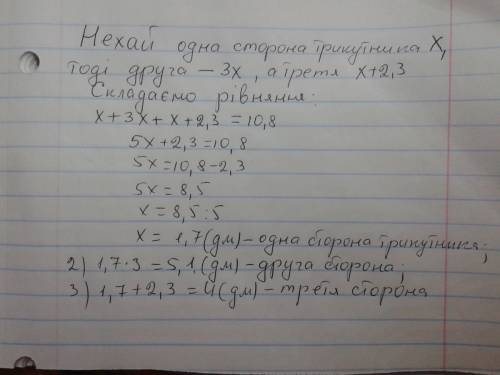 Нехай одна сторона трикутника X,
тоді друга – 3x, а третя x+2,3
Складаємо рівняння:
x+3x+x+2,3=10,8
5x+2,3=10,8
5x=10,8-2,3
5x=8,5
x=8,5:5
x= 1,7(дм)-одна сторона трикутника;
2) 1,7·3=5,1(дм)-друга сторона;
3) 1,7+2,3=4(дм)-третя сторона